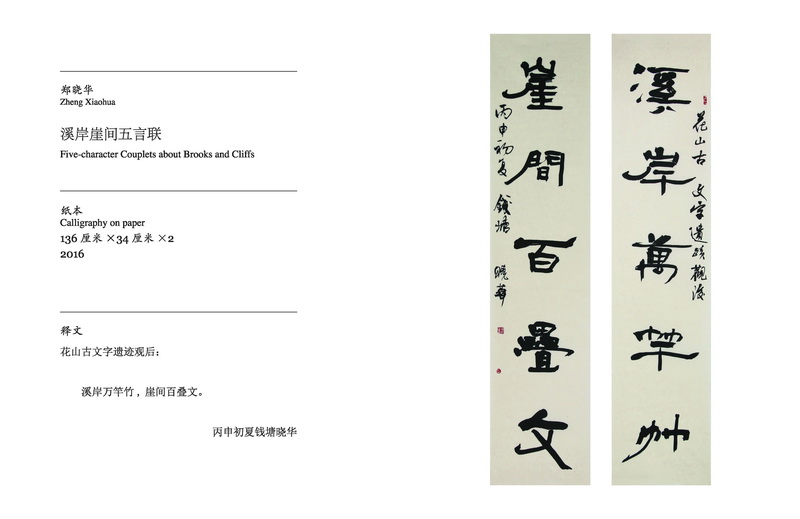 郑晓华
Zheng Xiaohua
溪岸崖间五言联
Five-character Couplets about Brooks and Cliffs
纸本
Calligraphy on paper
136 厘米 ×34 厘米 ×2
2016
释文
花山古文字遗迹观后：
溪岸万竿竹，崖间百叠文。
丙申初夏钱塘晓华
花山古文字遺蹟觀後
溪岸萬竿竹
崖間百疊文
丙申初夏錢塘曉華